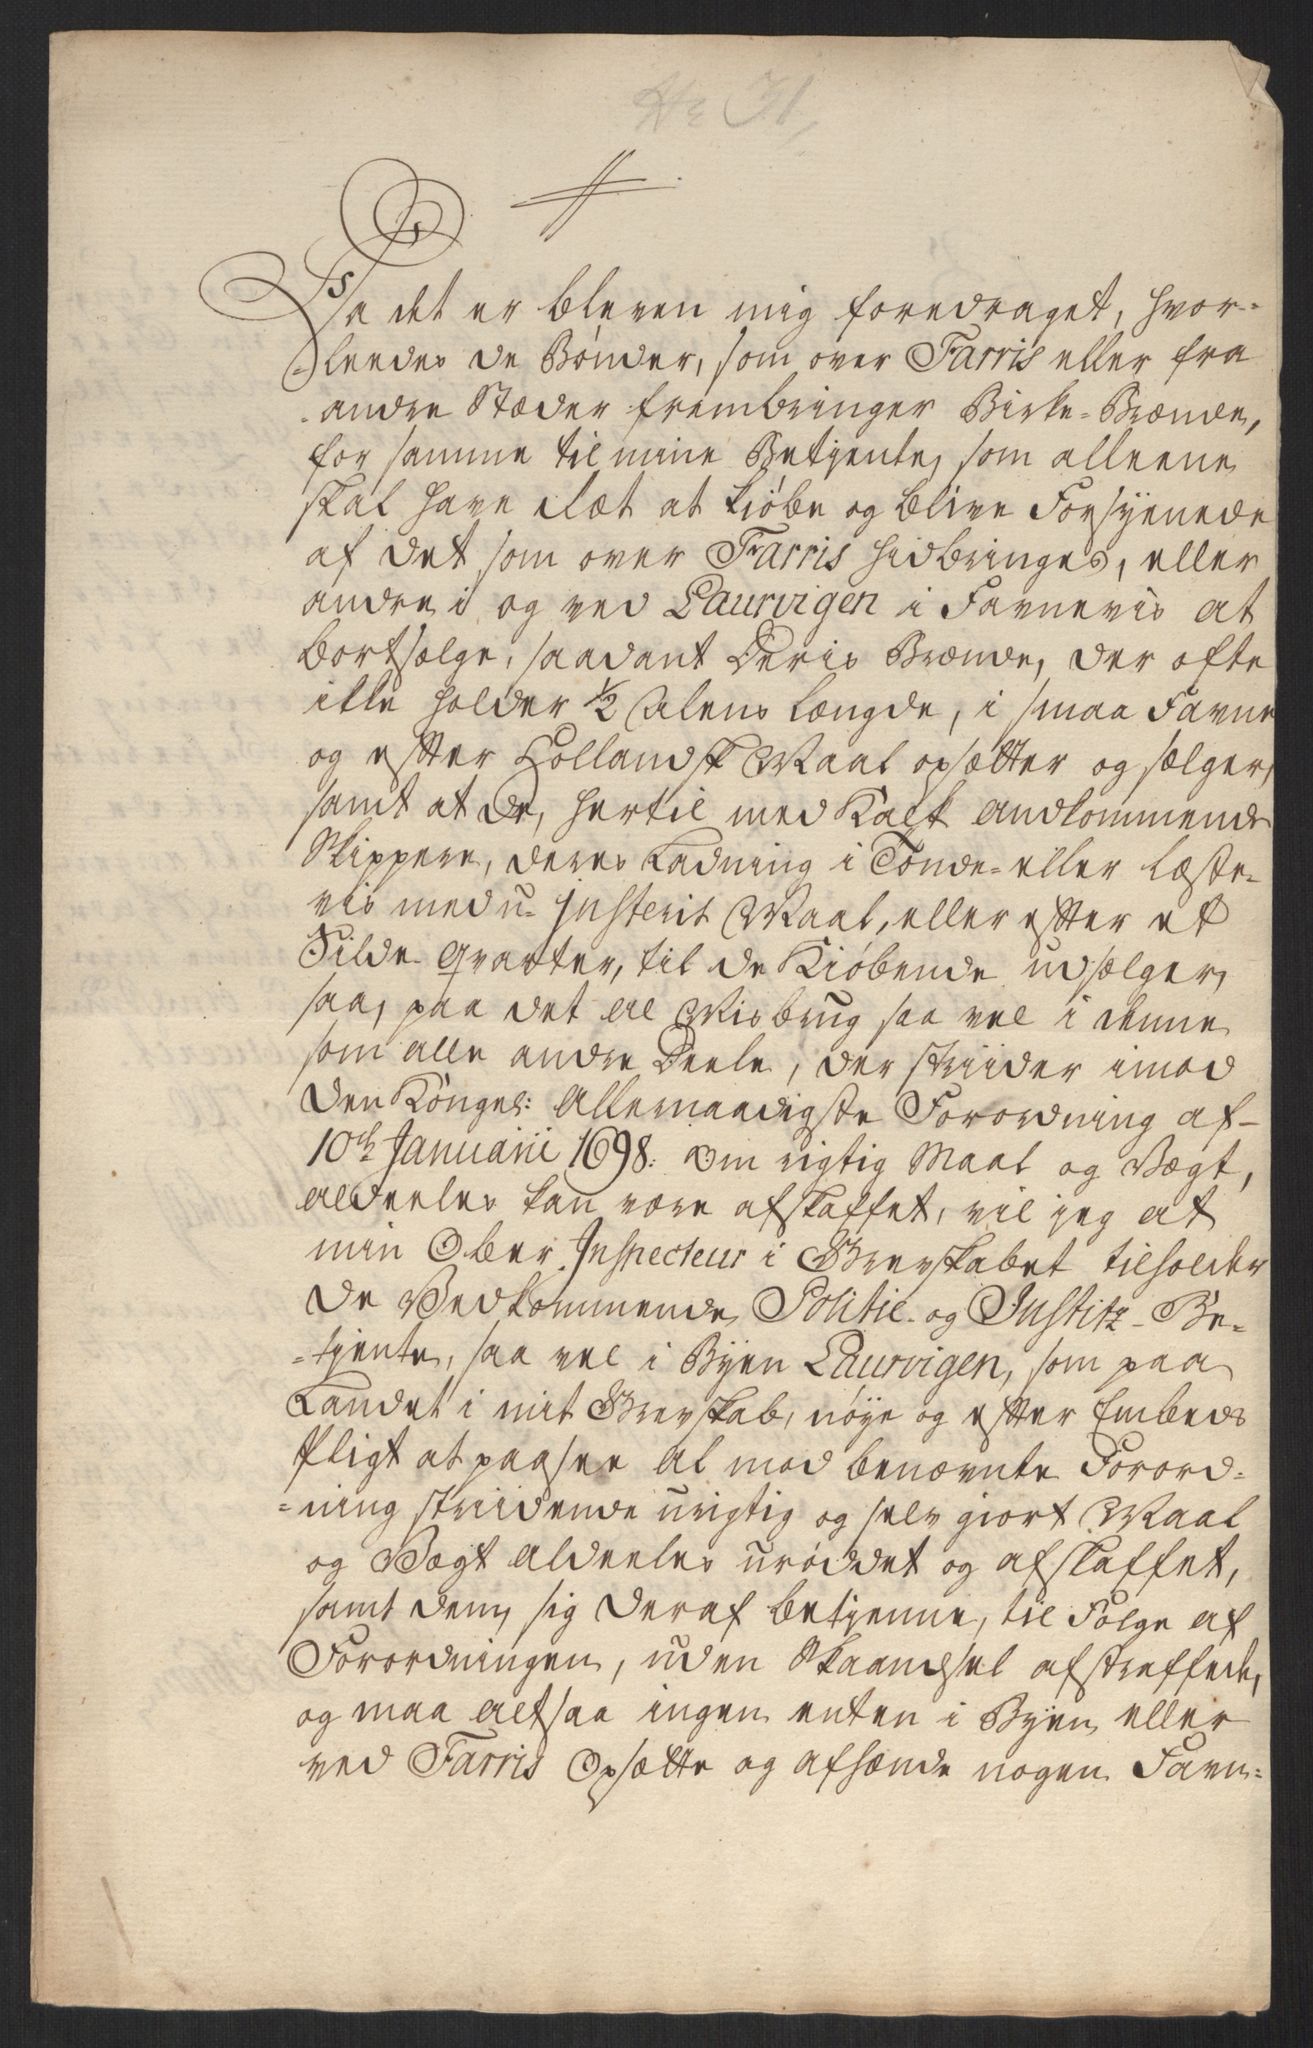 No 31,
Saa det er bleven mig foredraget, hvor-
-leedes de Bønder, som over Farris eller fra
andre Stæder frembringer Birke-Brænde,
for samme til mine Betjente, som alleene
skal have Ræt at kiøbe og blive Forsyenede
af det som over Farris hidbringes, eller
andre i og ved Laurvigen i Favneviis at
bortsælge, saadant Deris Brænde, der ofte
ikke holder 1/2 Alens længde, i smaa Favne
og efter Hollandsk Maal opsætter og sælger,
samt at de, hertil med Kalk andkommende
Skippere, deres Ladning i Tønde- eller læste-
vis med u-justerit Maal, eller efter et
Silde Qvarter, til de Kiøbende udsælger,
saa, paa det al Misbrug saa vel i denne
som alle andre Deele, der striider imod
Den Kongel: Allernaadigste Forordning af-
10de Januarii 1698. Om rigtig Maal og Vægt,
aldeeles kan være afskaffet, vil jeg at
min Ober Inspecteur i Grevskabet tilholder
de Vedkommende Politie- og Justitz-Be-
-tjente, saa vel i Byen Laurvigen, som paa
Landet i mit Grevskab, nøye og efter Embeds
Pligt at paasee al mod benævnte Forord-
-ning striidende urigtig og selv giort Maal
og Vægt aldeeles urøddet og afskaffet,
samt dem, sig deraf betjenne, til Følge af
Forordningen, uden Skaandsel afstraffede,
og maa altsaa ingen enten i Byen eller
ved Farris Opsætte og afhænde nogen Favn-